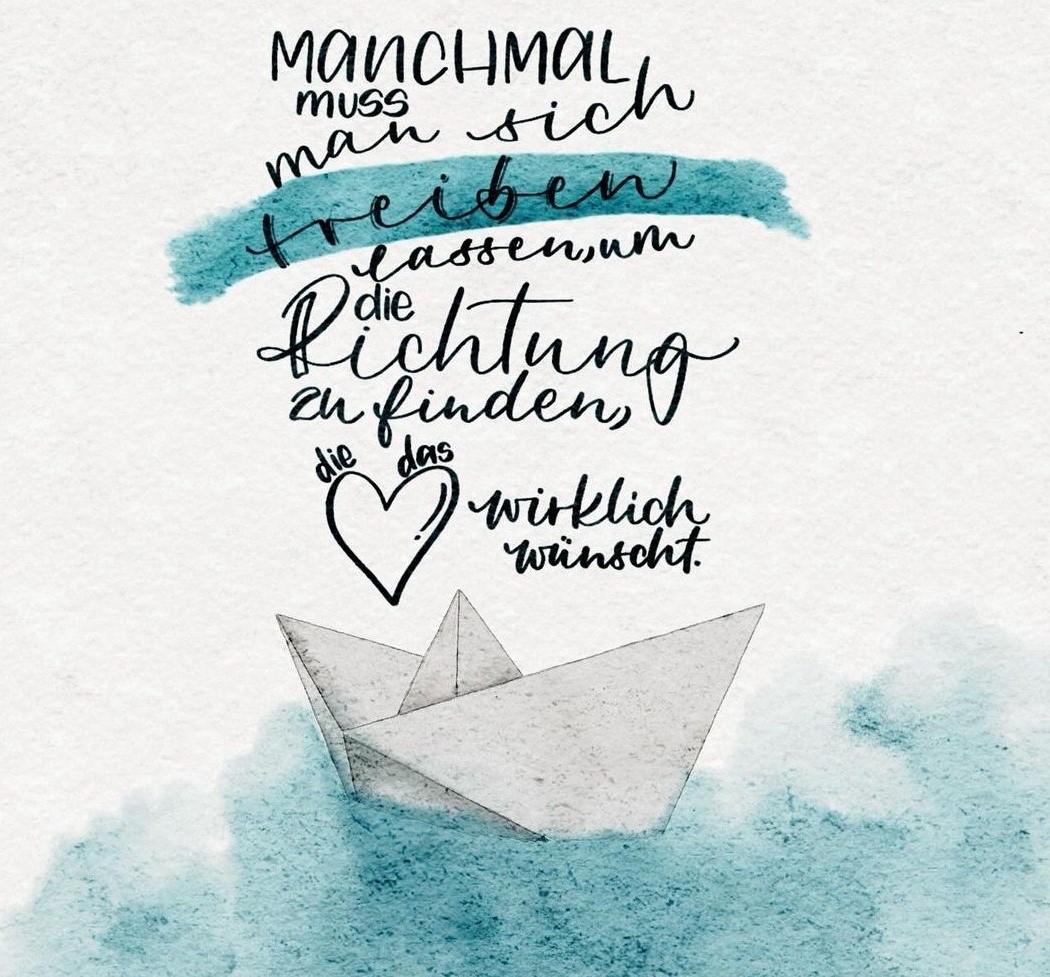 MANCHMAL
muss
man sich
treiben
lassen, um
die
Richtung
zu finden,
die das
wirklich
wünscht.